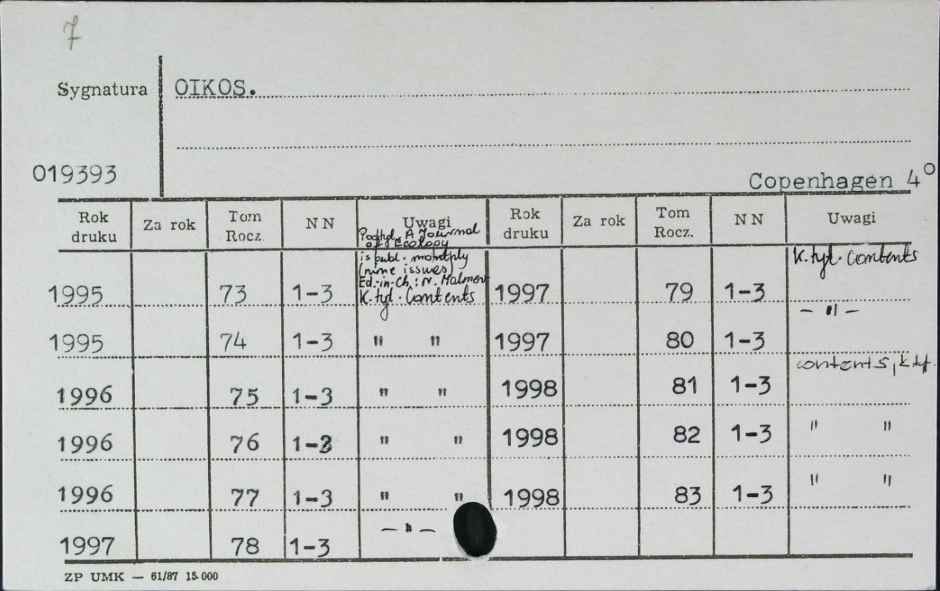 7
Sygnatura OIKOS.
019393
Copenhagen 4°
Rok druku Za rok Tom Rocz. N N Uwagi Rok druku Za rok Tom Rocz. N N Uwagi
Podtyt. A Journal
of Ecology
is publ. monthply
(nine issues)
Ed.-in-ch.: N. Malmer
1995 73 1-3 K. tyt. Contents 1997 79 1-3 K. tyt. Contents
1995 74 1-3 " " 1997 80 1-3 — " —
1996 75 1-3 " " 1998 81 1-3 contents, k.tyt.
1996 76 1-3 " " 1998 82 1-3 " "
1996 77 1-3 " " 1998 83 1-3 " "
1997 78 1-3 — " —
ZP UMK — 61/87 15.000